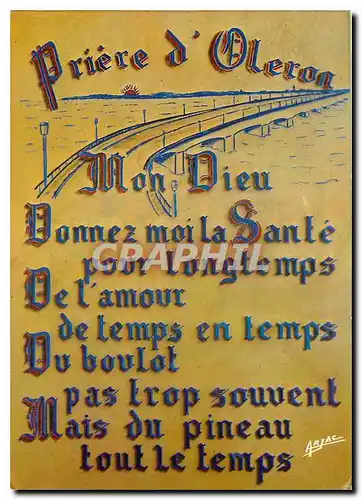 Prière d'Oleron
Mon Dieu
Donnez moi la Santé
pour longtemps
De l'amour
de temps en temps
Du boulot
pas trop souvent
Mais du pineau
tout le temps
ARJAC
CPARAMA